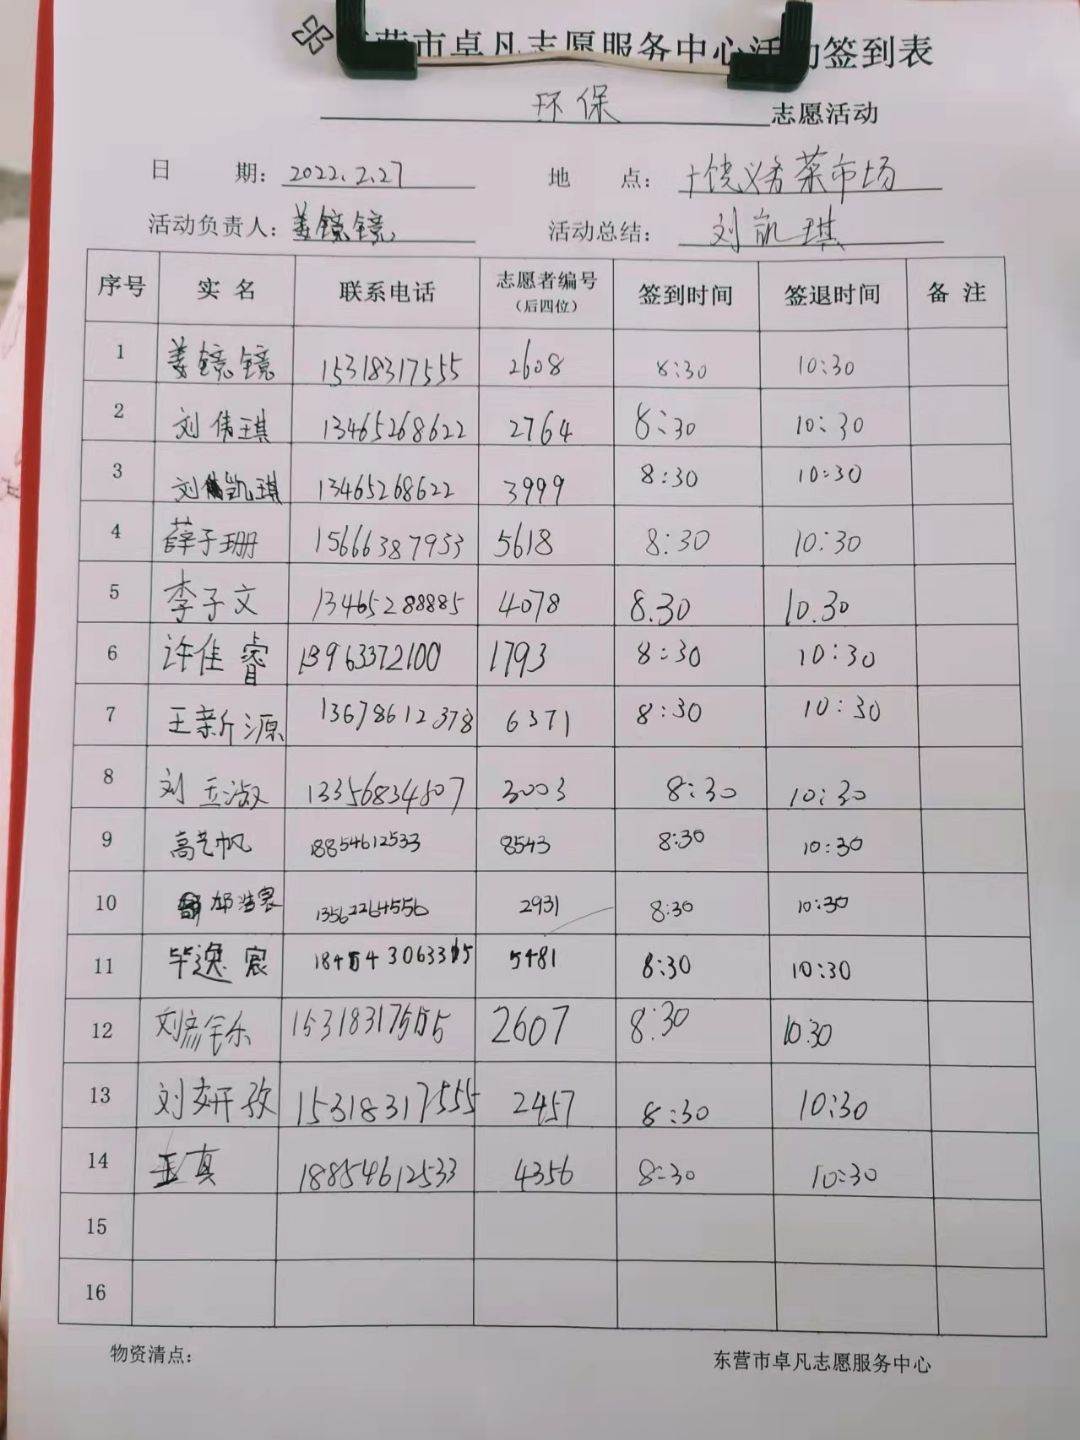 营市卓凡志愿服务中心活动签到表
环保 志愿活动
日 期: 2022.2.27 地 点: 义务菜市场
活动负责人: 姜镜镜 活动总结: 刘凯琪
序号 实 名 联系电话 志愿者编号 (后四位) 签到时间 签退时间 备 注
1 姜镜镜 15318317555 2608 8:30 10:30
2 刘伟琪 13465268622 2764 8:30 10:30
3 刘凯琪 13465268622 3999 8:30 10:30
4 薛子珊 15666387953 5618 8:30 10:30
5 李子文 13465288885 4078 8.30 10.30
6 许佳睿 13963372100 1793 8:30 10:30
7 王新源 13678612378 6371 8:30 10:30
8 刘玉淑 13356834807 3003 8:30 10:30
9 高艺帆 18854612533 8543 8:30 10:30
10 浩宸 13562264556 2931 8:30 10:30
11 毕逸宸 5481 8:30 10:30
12 刘 15318317555 2607 8:30 10:30
13 刘妍孜 15318317555 2457 8:30 10:30
14 王真 18854612533 4356 8:30 10:30
15
16
物资清点: 东营市卓凡志愿服务中心